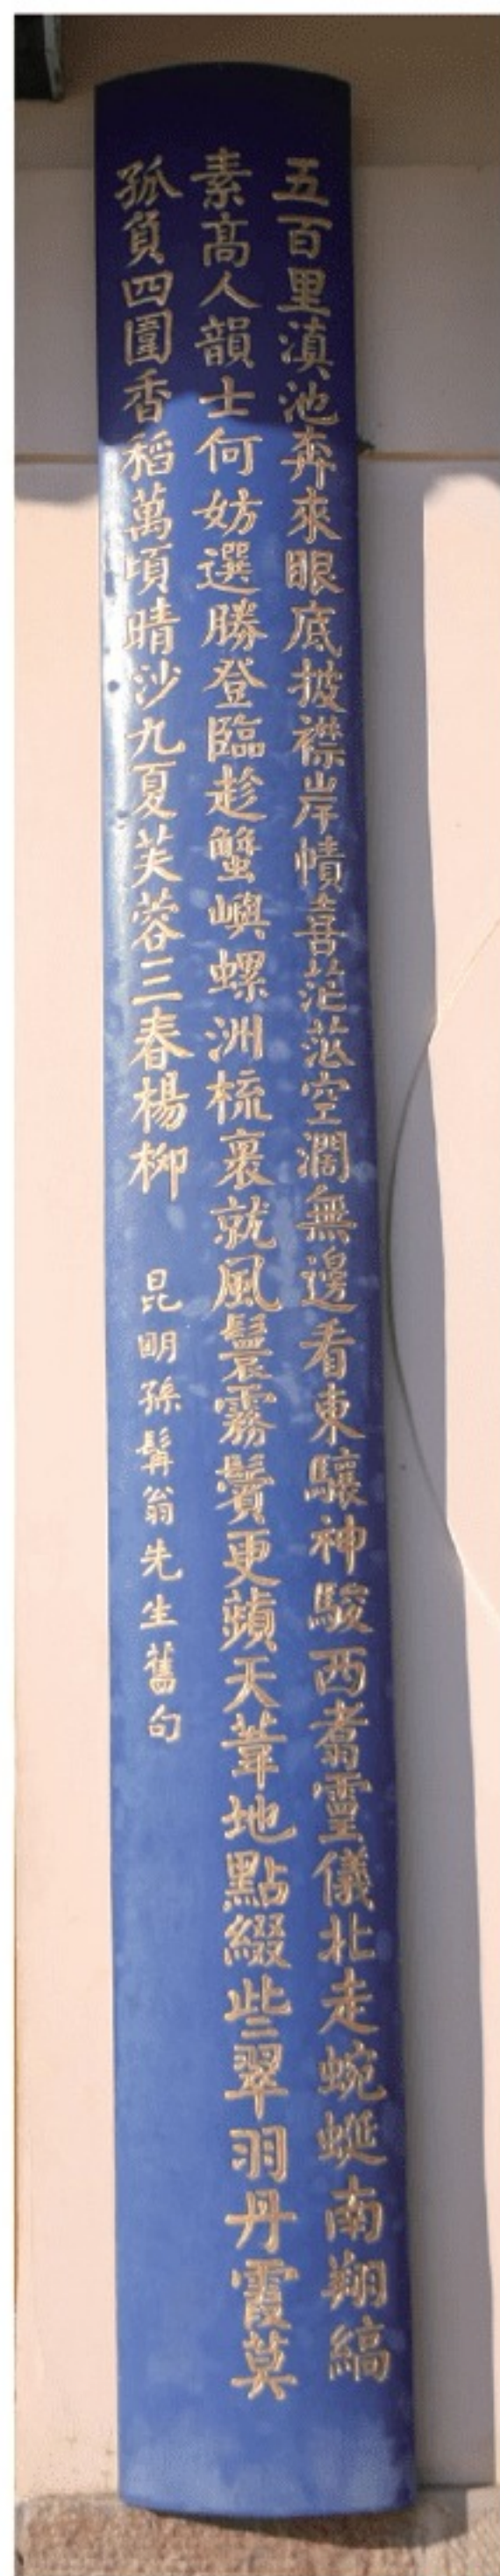 五百里滇池奔來眼底披襟岸幘喜茫茫空濶無邊看東驤神駿西翥靈儀北走蜿蜒南翔縞
素高人韻士何妨選勝登臨趁蟹嶼螺洲梳裹就風鬟霧鬢更蘋天葦地點綴些翠羽丹霞莫
孤負四圍香稻萬頃晴沙九夏芙蓉三春楊柳 昆明孫髯翁先生舊句